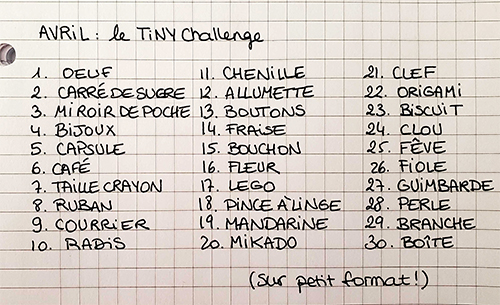 AVRIL : le TiNY challenge
1. OEUF
2. CARRÉ DE SUCRE
3. MIROIR DE POCHE
4. BIJOUX
5. CAPSULE
6. CAFÉ
7. TAILLE CRAYON
8. RUBAN
9. COURRIER
10. RADIS
11. CHENILLE
12. ALLUMETTE
13. BOUTONS
14. FRAISE
15. BOUCHON
16. FLEUR
17. LEGO
18. PINCE À LINGE
19. MANDARINE
20. MIKADO
21. CLEF
22. ORIGAMI
23. BISCUIT
24. CLOU
25. FÊVE
26. FIOLE
27. GUIMBARDE
28. PERLE
29. BRANCHE
30. BOÎTE
(Sur petit format !)